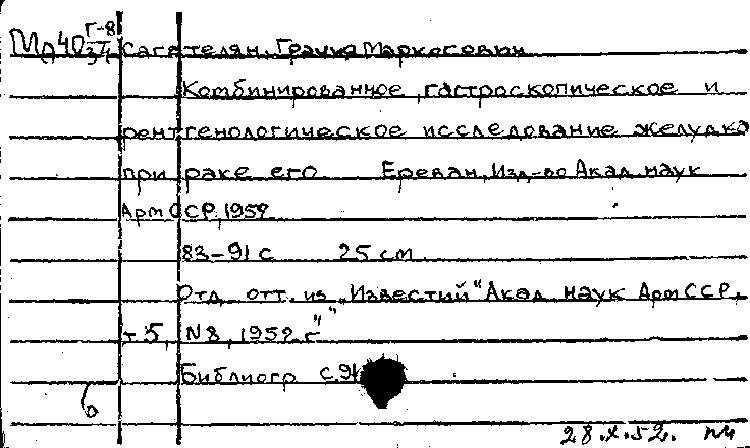 Г-8
Ма 40 34 Сагателян, Грачиа Маркосович
Комбинированное гастроскопическое и
рентгенологическое исследование желудка
при раке его Ереван, Изд-во Акад. наук
АрмССР, 1952
83-91 с 25 см
Отд. отт. из „Известий" Акад. наук АрмССР,
т 5, N8, 1952 г.
Библиогр с.91
б
28.X.52.